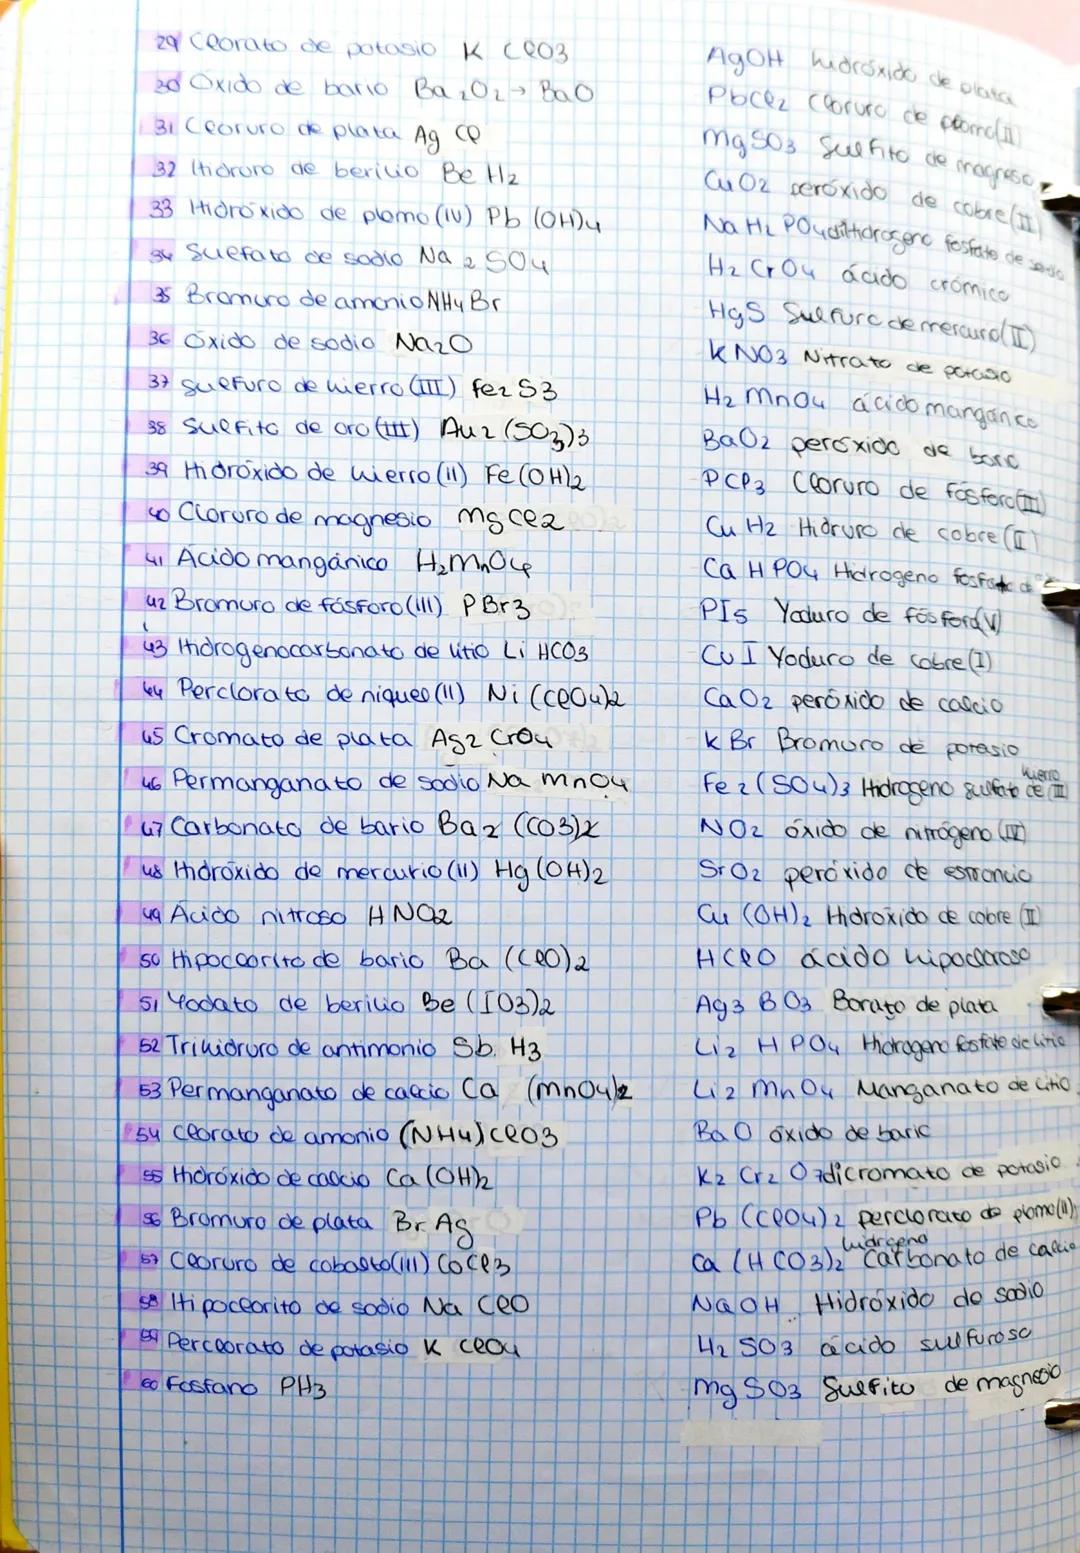 29 Clorato de potasio K ClO3
30 Óxido de bario Ba2O2 → BaO
31 Cloruro de plata Ag Cl
32 Hidruro de berilio Be H2
33 Hidróxido de plomo (IV) Pb (OH)4
34 Sulfato de sodio Na2SO4
35 Bromuro de amonio NH4Br
36 óxido de sodio Na2O
37 sulfuro de hierro (III) Fe2S3
38 Sulfito de oro (III) Au2(SO3)3
39 Hidróxido de hierro (II) Fe(OH)2
40 Cloruro de magnesio MgCl2
41 Ácido mangánico H2MnO4
42 Bromuro de fósforo (III) PBr3
43 Hidrogenocarbonato de litio Li HCO3
44 Perclorato de niquel (II) Ni (ClO4)2
45 Cromato de plata Ag2 CrO4
46 Permanganato de sodio Na MnO4
47 Carbonato de bario Ba2 (CO3)2
48 Hidróxido de mercurio (II) Hg (OH)2
49 Ácido nitroso HNO2
50 Hipoclorito de bario Ba (ClO)2
51 Yodato de berilio Be (IO3)2
52 Trihidruro de antimonio Sb H3
53 Permanganato de calcio Ca (MnO4)2
54 Clorato de amonio (NH4)ClO3
55 Hidróxido de calcio Ca (OH)2
56 Bromuro de plata Br Ag
57 Cloruro de cobalto (III) CoCl3
58 Hipoclorito de sodio Na ClO
59 Perclorato de potasio K ClO4
60 Fosfano PH3
AgOH hidróxido de plata
PbCl2 Cloruro de plomo (II)
MgSO3 Sulfito de magnesio
CuO2 peróxido de cobre (II)
Na H2 PO4 dihidrogeno fosfato de sodio
H2 CrO4 ácido crómico
HgS Sulfuro de mercurio (II)
KNO3 Nitrato de potasio
H2 MnO4 ácido mangánico
BaO2 peróxido de bario
PCl3 Cloruro de fósforo (III)
Cu H2 Hidruro de cobre (II)
Ca H PO4 Hidrogeno fosfato de
PI5 Yoduro de fósforo (V)
Cu I Yoduro de cobre (I)
CaO2 peróxido de calcio
K Br Bromuro de potasio
Fe2 (SO4)3 Hidrogeno sulfato de hierro (III)
NO2 óxido de nitrógeno (IV)
SrO2 peróxido de estroncio
Cu (OH)2 Hidróxido de cobre (II)
HClO ácido hipocloroso
Ag3 BO3 Borato de plata
Li2 HPO4 Hidrogeno fosfato de litio
Li2 MnO4 Manganato de litio
BaO óxido de bario
K2 Cr2 O7 dicromato de potasio
Pb (ClO4)2 perclorato de plomo (II)
Ca (HCO3)2 hidrogeno Carbonato de calcio
NaOH Hidróxido de sodio
H2 SO3 ácido sulfuroso
Mg SO3 Sulfito de magnesio